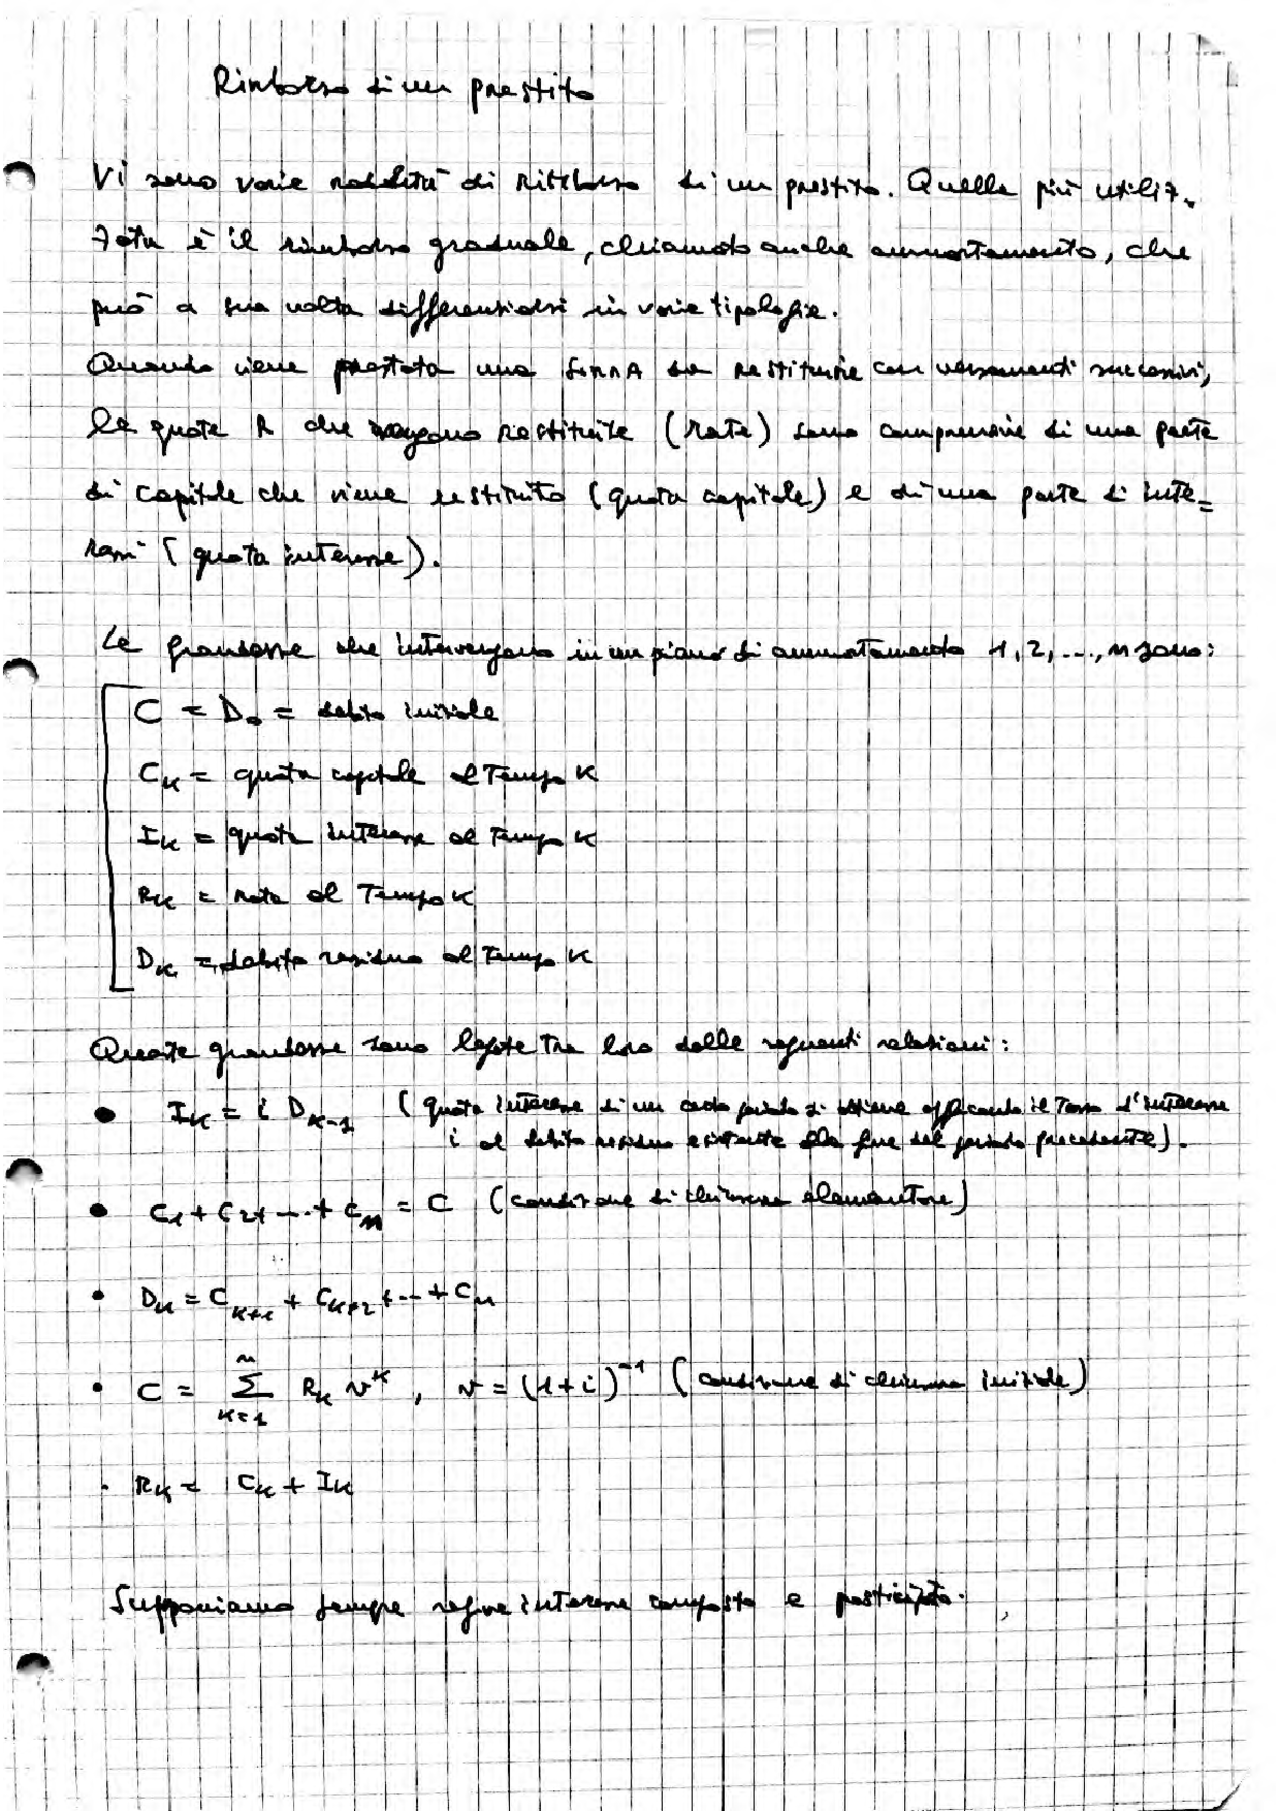 Rimborso di un prestito
Vi sono varie modalità di rimborso di un prestito. Quella più utiliz-
zata è il rimborso graduale, chiamato anche ammortamento, che
può a sua volta differenziarsi in varie tipologie.
Quando viene prestata una somma da restituire con versamenti successivi,
le quote R che vengono restituite (rate) sono comprensive di una parte
di capitale che viene restituito (quota capitale) e di una parte di inte=
ressi (quota interesse).
Le grandezze che intervengono in un piano di ammortamento 1, 2, ..., n sono:
C = D₀ = debito iniziale
Cₖ = quota capitale al tempo k
Iₖ = quota interesse al tempo k
Rₖ = rata al tempo k
Dₖ = debito residuo al tempo k
Queste grandezze sono legate tra loro dalle seguenti relazioni:
• Iₖ = i Dₖ₋₁ (quota interesse di un certo periodo si ottiene applicando il tasso d'interesse
i al debito residuo esistente alla fine del periodo precedente).
• C₁ + C₂ + ... + Cₙ = C (condizione di chiusura elementare)
• Dₖ = Cₖ₊₁ + Cₖ₊₂ + ... + Cₙ
• C = Σₖ₌₁ⁿ Rₖ vᵏ, v = (1+i)⁻¹ (condizione di chiusura iniziale)
• Rₖ = Cₖ + Iₖ
Supponiamo sempre regime interesse composto e posticipato.